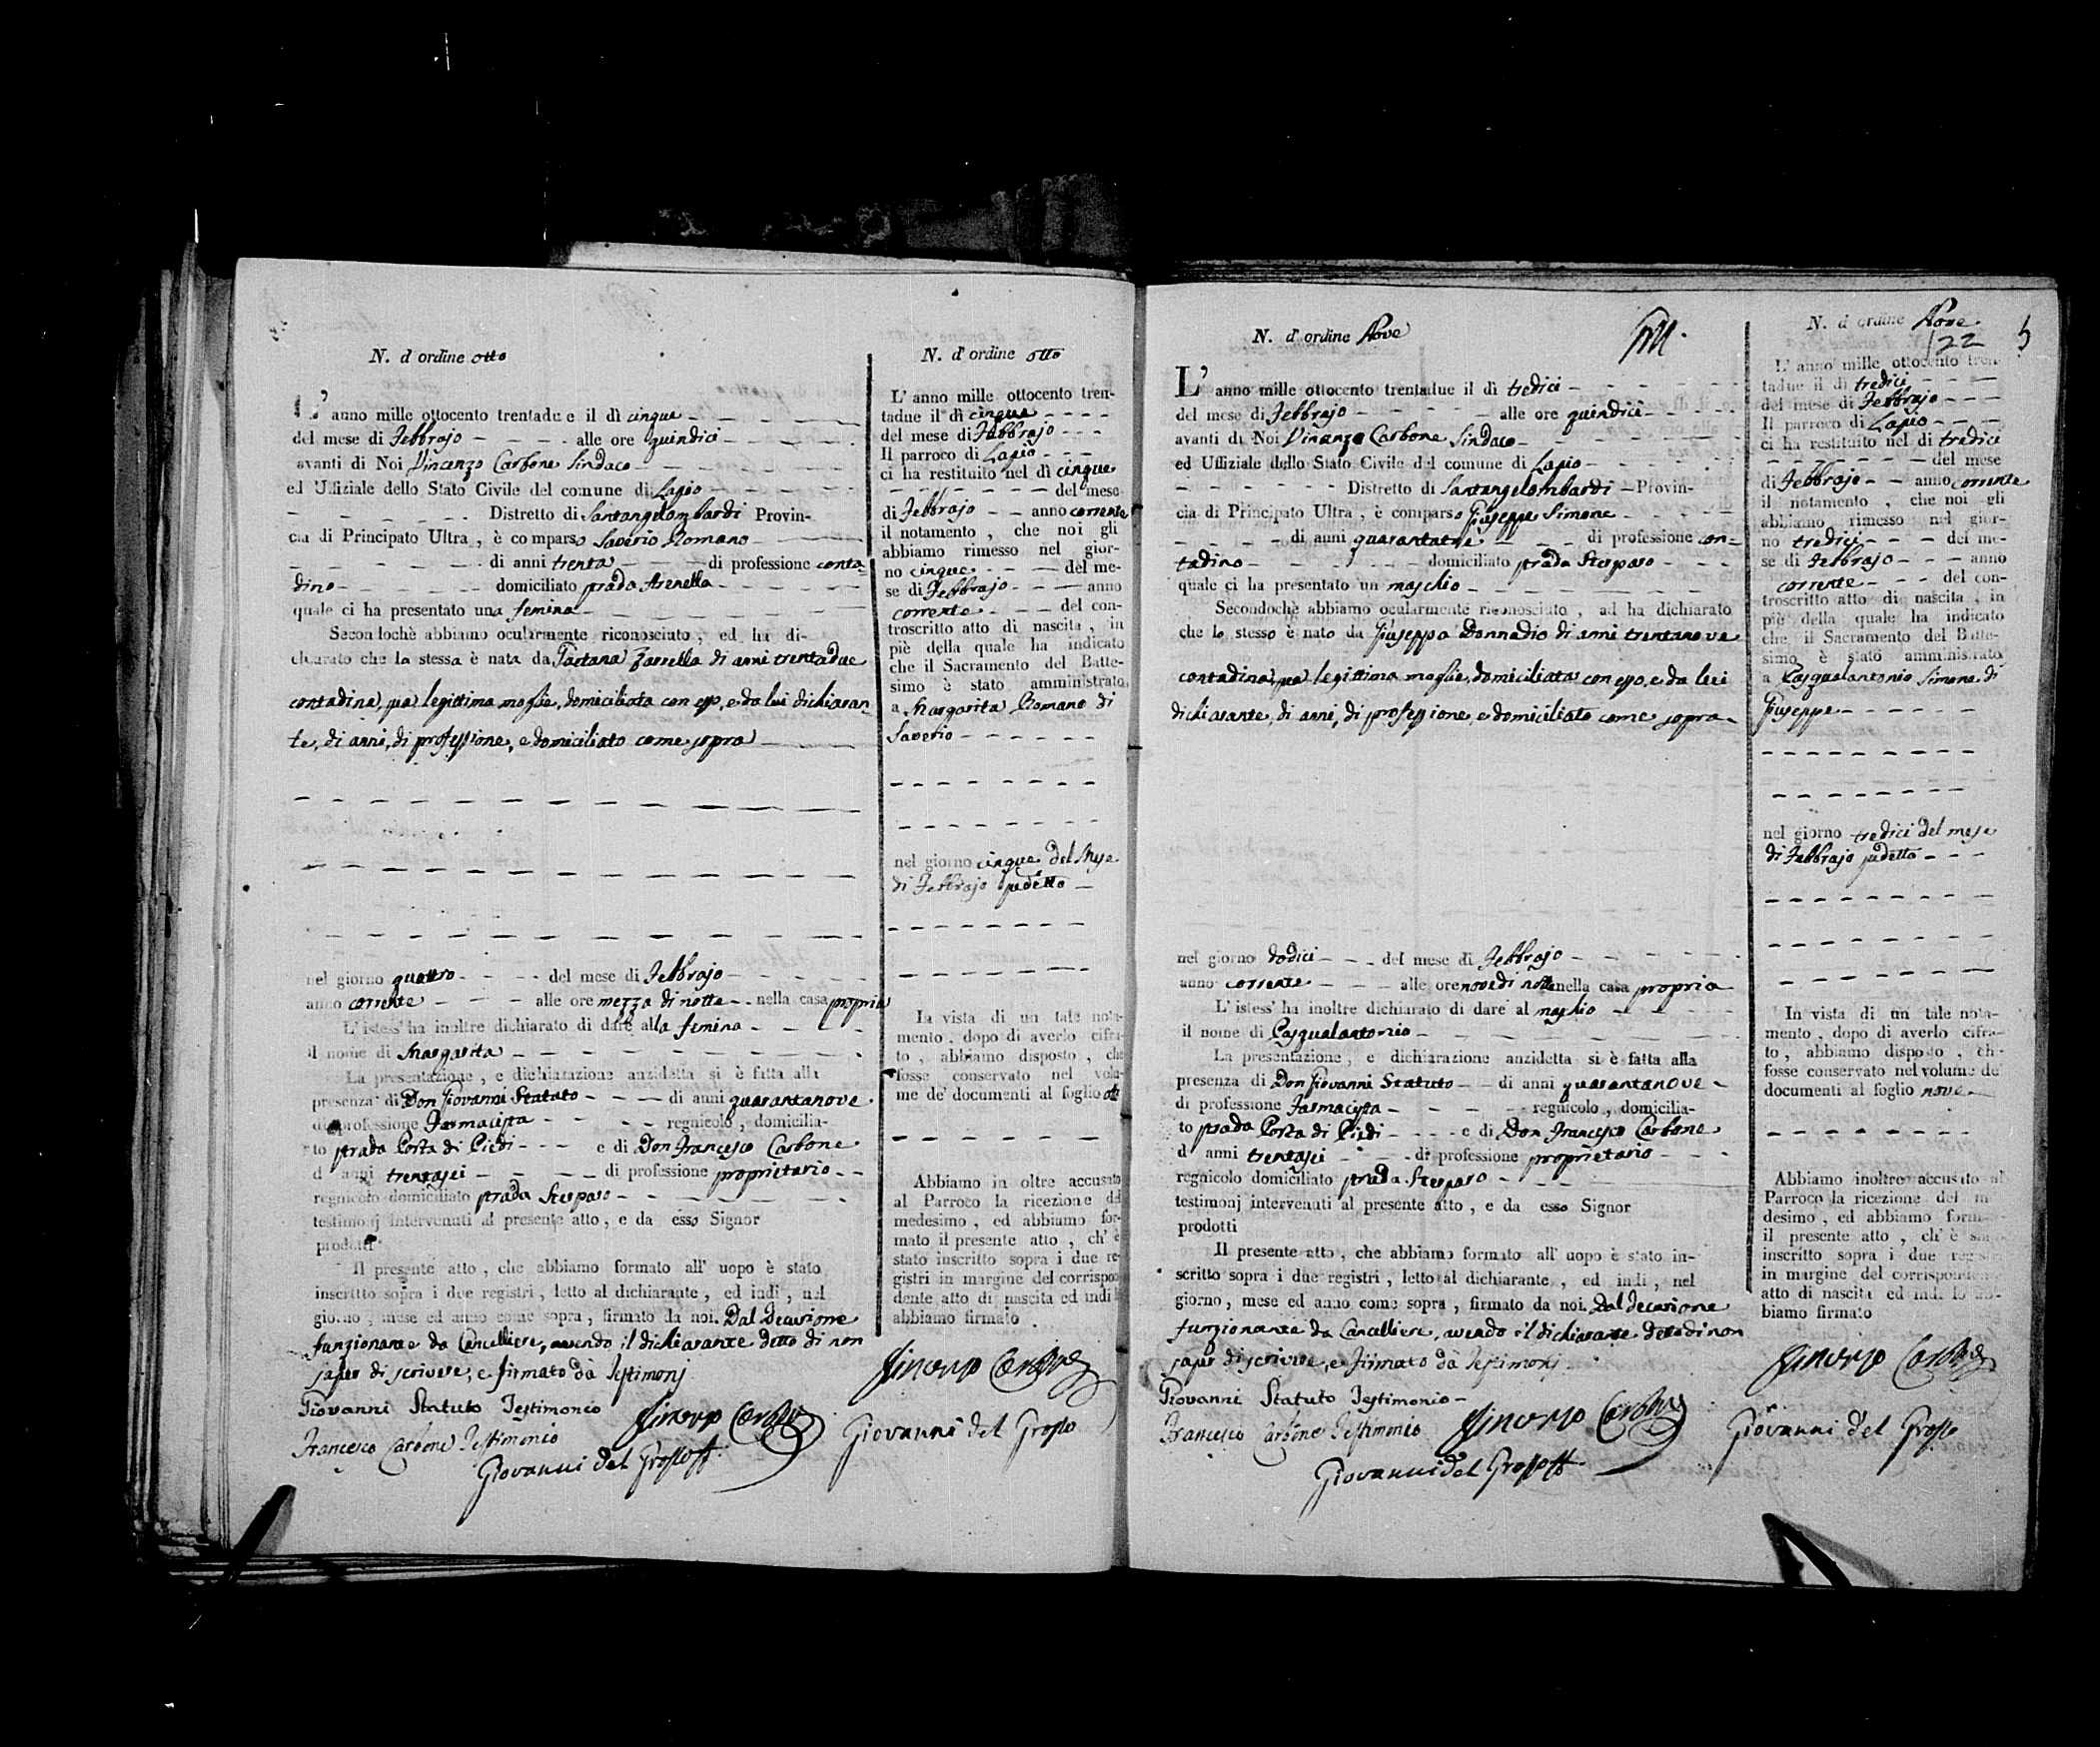 N. d'ordine otto
L' anno mille ottocento trentadue il dì cinque
del mese di Febbrajo alle ore quindici
avanti di Noi Vincenzo Carbone Sindaco
ed Uffiziale dello Stato Civile del comune di Lapio
Distretto di Santangelombardi Provin-
cia di Principato Ultra, è comparso Saverio Romano
di anni trenta di professione conta-
dino domiciliato strada Arenella
quale ci ha presentato una femina
Secondochè abbiamo ocularmente riconosciuto, ed ha di-
chiarato che la stessa è nata da Gaetana Zarrella di anni trentadue
contadina, sua legittima moglie, domiciliata con esso, e da lui dichiaran-
te, di anni, di professione, e domiciliato come sopra
nel giorno quattro del mese di Febbrajo
anno corrente alle ore mezza di notte nella casa propria
L'istess' ha inoltre dichiarato di dare alla femina
il nome di Margarita
La presentazione, e dichiarazione anzidetta si è fatta alla
presenza di Don Giovanni Statuto di anni quarantanove
di professione Farmacista regnicolo, domicilia-
to strada Porta di Piedi e di Don Francesco Carbone
di anni trentasei di professione proprietario
regnicolo domiciliato strada Stesparo
testimonj intervenuti al presente atto, e da esso Signor
prodotti
Il presente atto, che abbiamo formato all' uopo è stato
inscritto sopra i due registri, letto al dichiarante, ed indi, nel
giorno, mese ed anno come sopra, firmato da noi. Dal Decurione
funzionante da Cancelliere, avendo il dichiarante detto di non
saper di scrivere, e firmato dà Testimonj
Giovanni Statuto Testimonio
Francesco Carbone Testimonio
Vincenzo Carbone
Giovanni del Grosso
N. d'ordine otto
L' anno mille ottocento tren-
tadue il dì cinque
del mese di Febbrajo
Il parroco di Lapio
ci ha restituito nel dì cinque
del mese
di Febbrajo anno corrente
il notamento, che noi gli
abbiamo rimesso nel gior-
no cinque del me-
se di Febbrajo anno
corrente del con-
troscritto atto di nascita, in
piè della quale ha indicato
che il Sacramento del Batte-
simo è stato amministrato
a Margarita Romano di
Saverio
nel giorno cinque del Mese
di Febbrajo sudetto
In vista di un tale nota-
mento, dopo di averlo cifra-
to, abbiamo disposto, che
fosse conservato nel volu-
me de' documenti al foglio otto
Abbiamo in oltre accusato
al Parroco la ricezione del
medesimo, ed abbiamo for-
mato il presente atto, ch' è
stato inscritto sopra i due re-
gistri in margine del corrispon-
dente atto di nascita ed indi
abbiamo firmato
Vincenzo Carbone
Giovanni del Grosso
N. d'ordine Nove
L' anno mille ottocento trentadue il dì tredici
del mese di Febbrajo alle ore quindici
avanti di Noi Vincenzo Carbone Sindaco
ed Uffiziale dello Stato Civile del comune di Lapio
Distretto di Santangelombardi Provin-
cia di Principato Ultra, è comparso Giuseppe Simone
di anni quarantatre di professione con-
tadino domiciliato strada Stesparo
quale ci ha presentato un maschio
Secondochè abbiamo ocularmente riconosciuto, ad ha dichiarato
che lo stesso è nato da Giuseppa Donnadio di anni trentanove
contadina, sua legittima moglie, domiciliata con esso, e da lui
dichiarante, di anni, di professione, e domiciliato come sopra
nel giorno dodici del mese di Febbrajo
anno corrente alle ore nove di notte nella casa propria
L'istess' ha inoltre dichiarato di dare al maschio
il nome di Pasqualantonio
La presentazione, e dichiarazione anzidetta si è fatta alla
presenza di Don Giovanni Statuto di anni quarantanove
di professione Farmacista regnicolo, domicilia-
to strada Porta di Piedi e di Don Francesco Carbone
di anni trentasei di professione proprietario
regnicolo domiciliato strada Stesparo
testimonj intervenuti al presente atto, e da esso Signor
prodotti
Il presente atto, che abbiamo formato all' uopo è stato in-
scritto sopra i due registri, letto al dichiarante, ed indi, nel
giorno, mese ed anno come sopra, firmato da noi. Dal Decurione
funzionante da Cancelliere, avendo il dichiarante detto di non
saper di scrivere, e firmato dà Testimonj
Giovanni Statuto Testimonio
Francesco Carbone Testimonio
Vincenzo Carbone
Giovanni del Grosso
N. d'ordine Nove
122
5
L' anno mille ottocento tren-
tadue il dì tredici
del mese di Febbrajo
Il parroco di Lapio
ci ha restituito nel dì tredici
del mese
di Febbrajo anno corrente
il notamento, che noi gli
abbiamo rimesso nel gior-
no tredici del me-
se di Febbrajo anno
corrente del con-
troscritto atto di nascita, in
piè della quale ha indicato
che il Sacramento del Batte-
simo è stato amministrato
a Pasqualantonio Simone di
Giuseppe
nel giorno tredici del mese
di Febbrajo sudetto
In vista di un tale nota-
mento, dopo di averlo cifra-
to, abbiamo disposto, che
fosse conservato nel volume de'
documenti al foglio nove
Abbiamo inoltre accusato al
Parroco la ricezione del me-
desimo, ed abbiamo formato
il presente atto, ch' è stato
inscritto sopra i due registri
in margine del corrispondente
atto di nascita ed indi lo ab-
biamo firmato
Vincenzo Carbone
Giovanni del Grosso